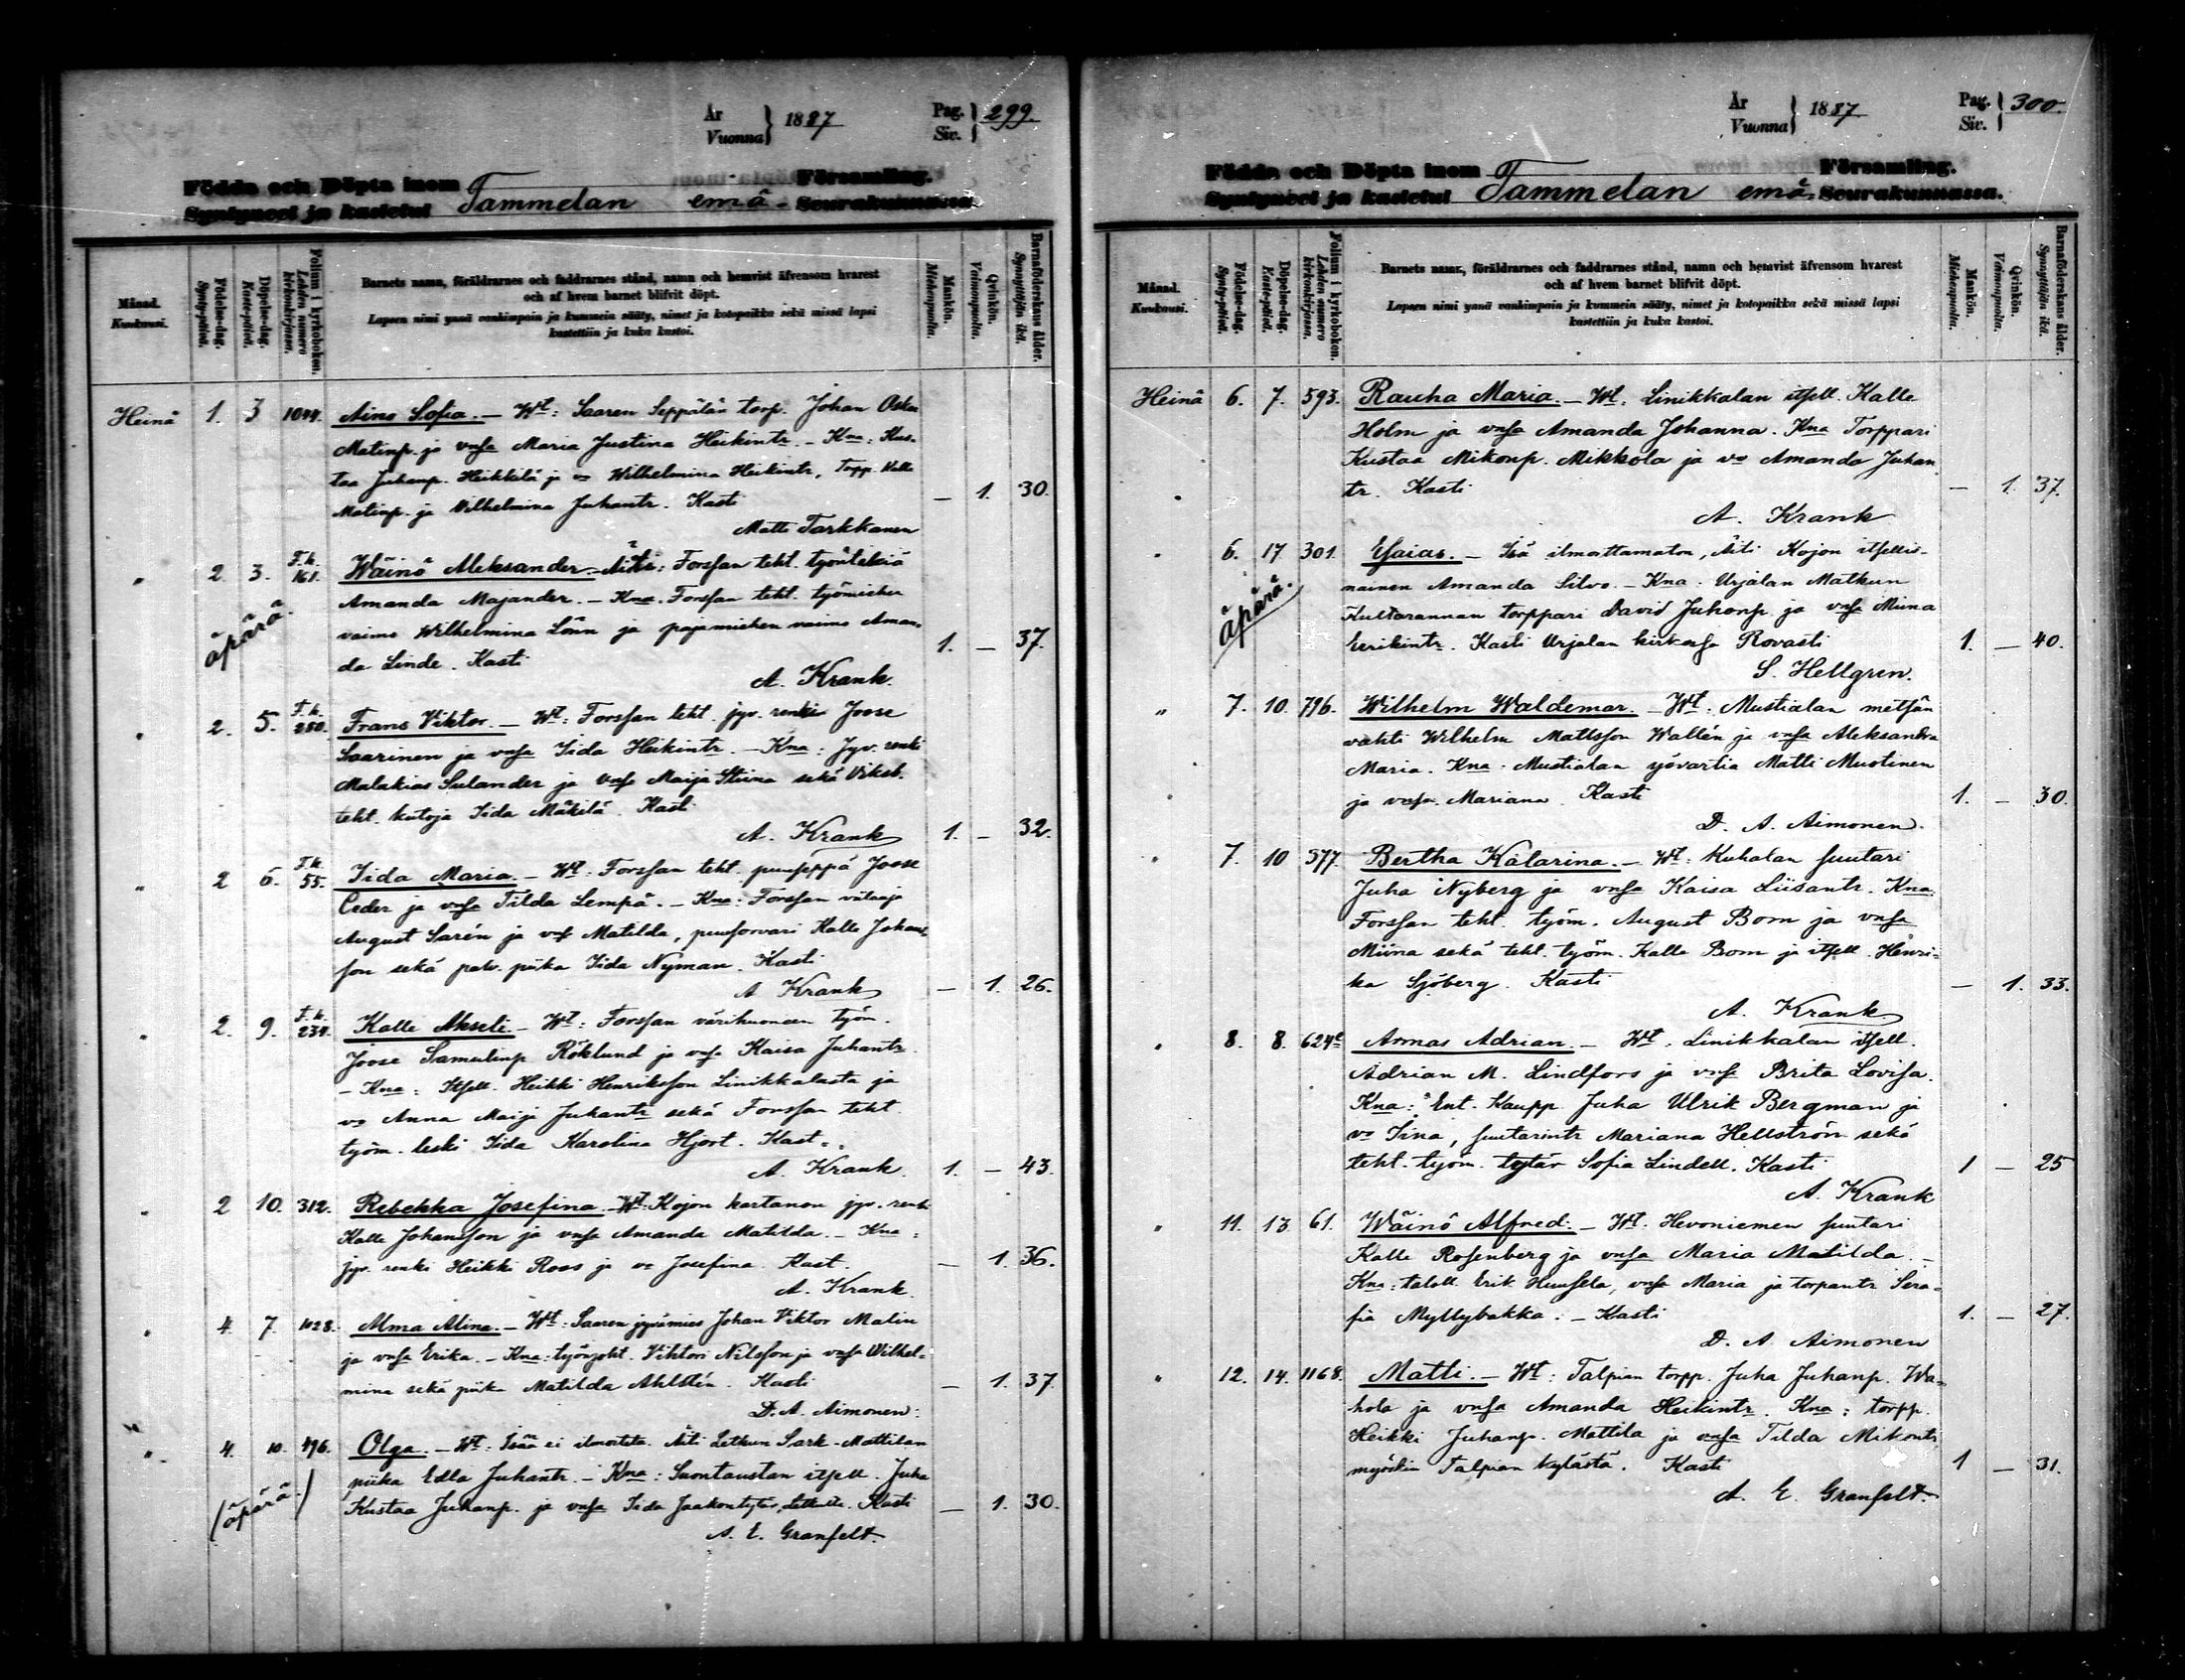 År
Vuonna } 1887
Pag.
Siv. } 299.
Födda och Döpta inom Församling.
Syntyneet ja kastetut Tammelan emä- Seurakunnassa.
Månad.
Kuukausi.
Födelse-dag.
Synty-päivä.
Döpelse-dag.
Kaste-päivä.
Folium i kyrkoboken.
Lehden numero kirkonkirjassa.
Barnets namn, föräldrarnes och faddrarnes stånd, namn och hemvist äfvensom hvarest
och af hvem barnet blifvit döpt.
Lapsen nimi ynnä vanhimpain ja kummein sääty, nimet ja kotopaikka sekä missä lapsi
kastettiin ja kuka kastoi.
Mankön.
Miehenpuolta.
Qvinkön.
Vaimonpuolta.
Barnaföderskans ålder.
Synnyttäjän ikä.
Heinä 1. 3 1044. Aino Sofia. — Wt: Saaren Seppälän torp. Johan Oskar
Matinp. ja vnsa Maria Justina Heikintr. — Kna: Kus-
taa Juhanp. Heikkilä ja vo Wilhelmina Heikintr, Torp. Kalle — 1. 30.
Matinp. ja Vilhelmina Juhantr. Kasti
Matti Tarkkanen
" 2. 3. F.h. 161. Wäinö Aleksander. Äiti: Forssan teht. työntekiä
Amanda Majander. — Kna. Forssan teht. työmiehen
äpärä. vaimo Wilhelmina Lönn ja pajamiehen vaimo Aman-
da Linde. Kasti 1. — 37.
A. Krank.
" 2. 5. F.h. 250. Frans Viktor. — Wt: Forssan teht. jyv. renki Joose
Saarinen ja vnsa Iida Heikintr. — Kna: Jyv. renki
Malakias Sulander ja vnsa Maija Stiina sekä Viksb.
teht. kutoja Iida Mäkilä. Kasti
A. Krank 1. — 32.
" 2 6. F.h. 55. Iida Maria. — Wt. Forssan teht. puuseppä Joose
Ceder ja vnsa Tilda Lempä. — Kna: Forssan viilaaja
August Sarén ja vnsa Matilda, puusorvari Kalle Johans-
son sekä palv. piika Iida Nyman. Kasti
A Krank — 1. 26.
" 2. 9. F.h. 234. Kalle Akseli. — Wt: Forssan värihuoneen työm.
Joose Samulinp Röklund ja vnsa Kaisa Juhantr.
— Kna: Itsell. Heikki Henriksson Linikkalasta ja
vo Anna Maija Juhantr sekä Forssan teht.
työm. leski Iida Karolina Hjort. Kast.
A. Krank. 1. — 43.
" 2 10. 312. Rebekka Josefina. — Wt: Kojon kartanon jyv. renki
Kalle Johansson ja vnsa Amanda Matilda. — Kna:
jyv. renki Heikki Roos ja vo Josefina. Kast. — 1. 36.
A. Krank.
" 4. 7. 1028. Alma Alina. — Wt: Saaren jyvämies Johan Viktor Malin
ja vnsa Erika. — Kna: työnjoht. Vihtori Nilsson ja vnsa Wilhel-
mina sekä piika Matilda Ahlstén. Kasti — 1. 37.
D. A. Aimonen:
" 4. 10. 496. Olga. — Wt: Isää ei ilmoitettu. Äiti Letkun Sark-Mattilan
piika Edla Juhantr. — Kna: Suontaustan itsell. Juha
(äpärä.) Kustaa Juhanp. ja vnsa Iida Jaakontytär, Letkulta. Kasti — 1. 30.
A. E. Granfelt.
År
Vuonna } 1887.
Pag.
Siv. } 300.
Födda och Döpta inom Församling.
Syntyneet ja kastetut Tammelan emä- Seurakunnassa.
Månad.
Kuukausi.
Födelse-dag.
Synty-päivä.
Döpelse-dag.
Kaste-päivä.
Folium i kyrkoboken.
Lehden numero kirkonkirjassa.
Barnets namn, föräldrarnes och faddrarnes stånd, namn och hemvist äfvensom hvarest
och af hvem barnet blifvit döpt.
Lapsen nimi ynnä vanhimpain ja kummein sääty, nimet ja kotopaikka sekä missä lapsi
kastettiin ja kuka kastoi.
Mankön.
Miehenpuolta.
Qvinkön.
Vaimonpuolta.
Barnaföderskans ålder.
Synnyttäjän ikä.
Heinä 6. 7. 593. Rauha Maria. — Wt. Linikkalan itsell. Kalle
Holm ja vnsa Amanda Johanna. Kna Torppari
Kustaa Mikonp. Mikkola ja vo Amanda Juhan
tr. Kasti — 1. 37.
A. Krank
" 6. 17 301. Esaias. — Isä ilmoittamaton, Äiti Kojon itsellis-
nainen Amanda Silvo. — Kna. Urjalan Matkun
äpärä. Kultarannan torppari David Juhanp ja vnsa Miina
Eerikintr. Kasti Urjalan kirkossa Rovasti 1. — 40.
S. Hellgren.
" 7. 10. 796. Wilhelm Waldemar. — Wt. Mustialan metsän
vahti Wilhelm Mattsson Wallén ja vnsa Aleksandra
Maria. Kna. Mustialan yövartia Matti Muotinen
ja vnsa. Mariana. Kasti 1. — 30.
D. A. Aimonen.
" 7. 10 577. Bertha Katarina. — Wt: Kuhalan suutari
Juha Nyberg ja vnsa Kaisa Liisantr. Kna:
Forssan teht. työm. August Bom ja vnsa
Miina sekä teht. työm. Kalle Bom ja itsell. Henri-
ka Sjöberg. Kasti — 1. 33.
A. Krank
" 8. 8. 624c Armas Adrian. — Wt. Linikkalan itsell.
Adrian M. Lindfors ja vnsa Brita Lovisa.
Kna: Ent. Kaupp. Juha Ulrik Bergman ja
vo Iina, suutarintr Mariana Hellström sekä
teht. työm. tytär Sofia Lindell. Kasti 1 — 25
A. Krank
" 11. 13 61. Wäinö Alfred: — Wt. Hevoniemen suutari
Kalle Rosenberg ja vnsa Maria Matilda. —
Kna: taloll. Erik Huusela, vnsa Maria ja torpantr Sera-
fia Myllybakka: — Kasti 1. — 27.
D. A. Aimonen
" 12. 14. 1168. Matti. — Wt: Talpian torpp. Juha Juhanp. Wa-
hola ja vnsa Amanda Heikintr. Kna: torpp.
Heikki Juhanp. Mattila ja vnsa Tilda Mikontr
myöskin Talpian kylästä. Kasti 1 — 31.
A. E. Granfelt.